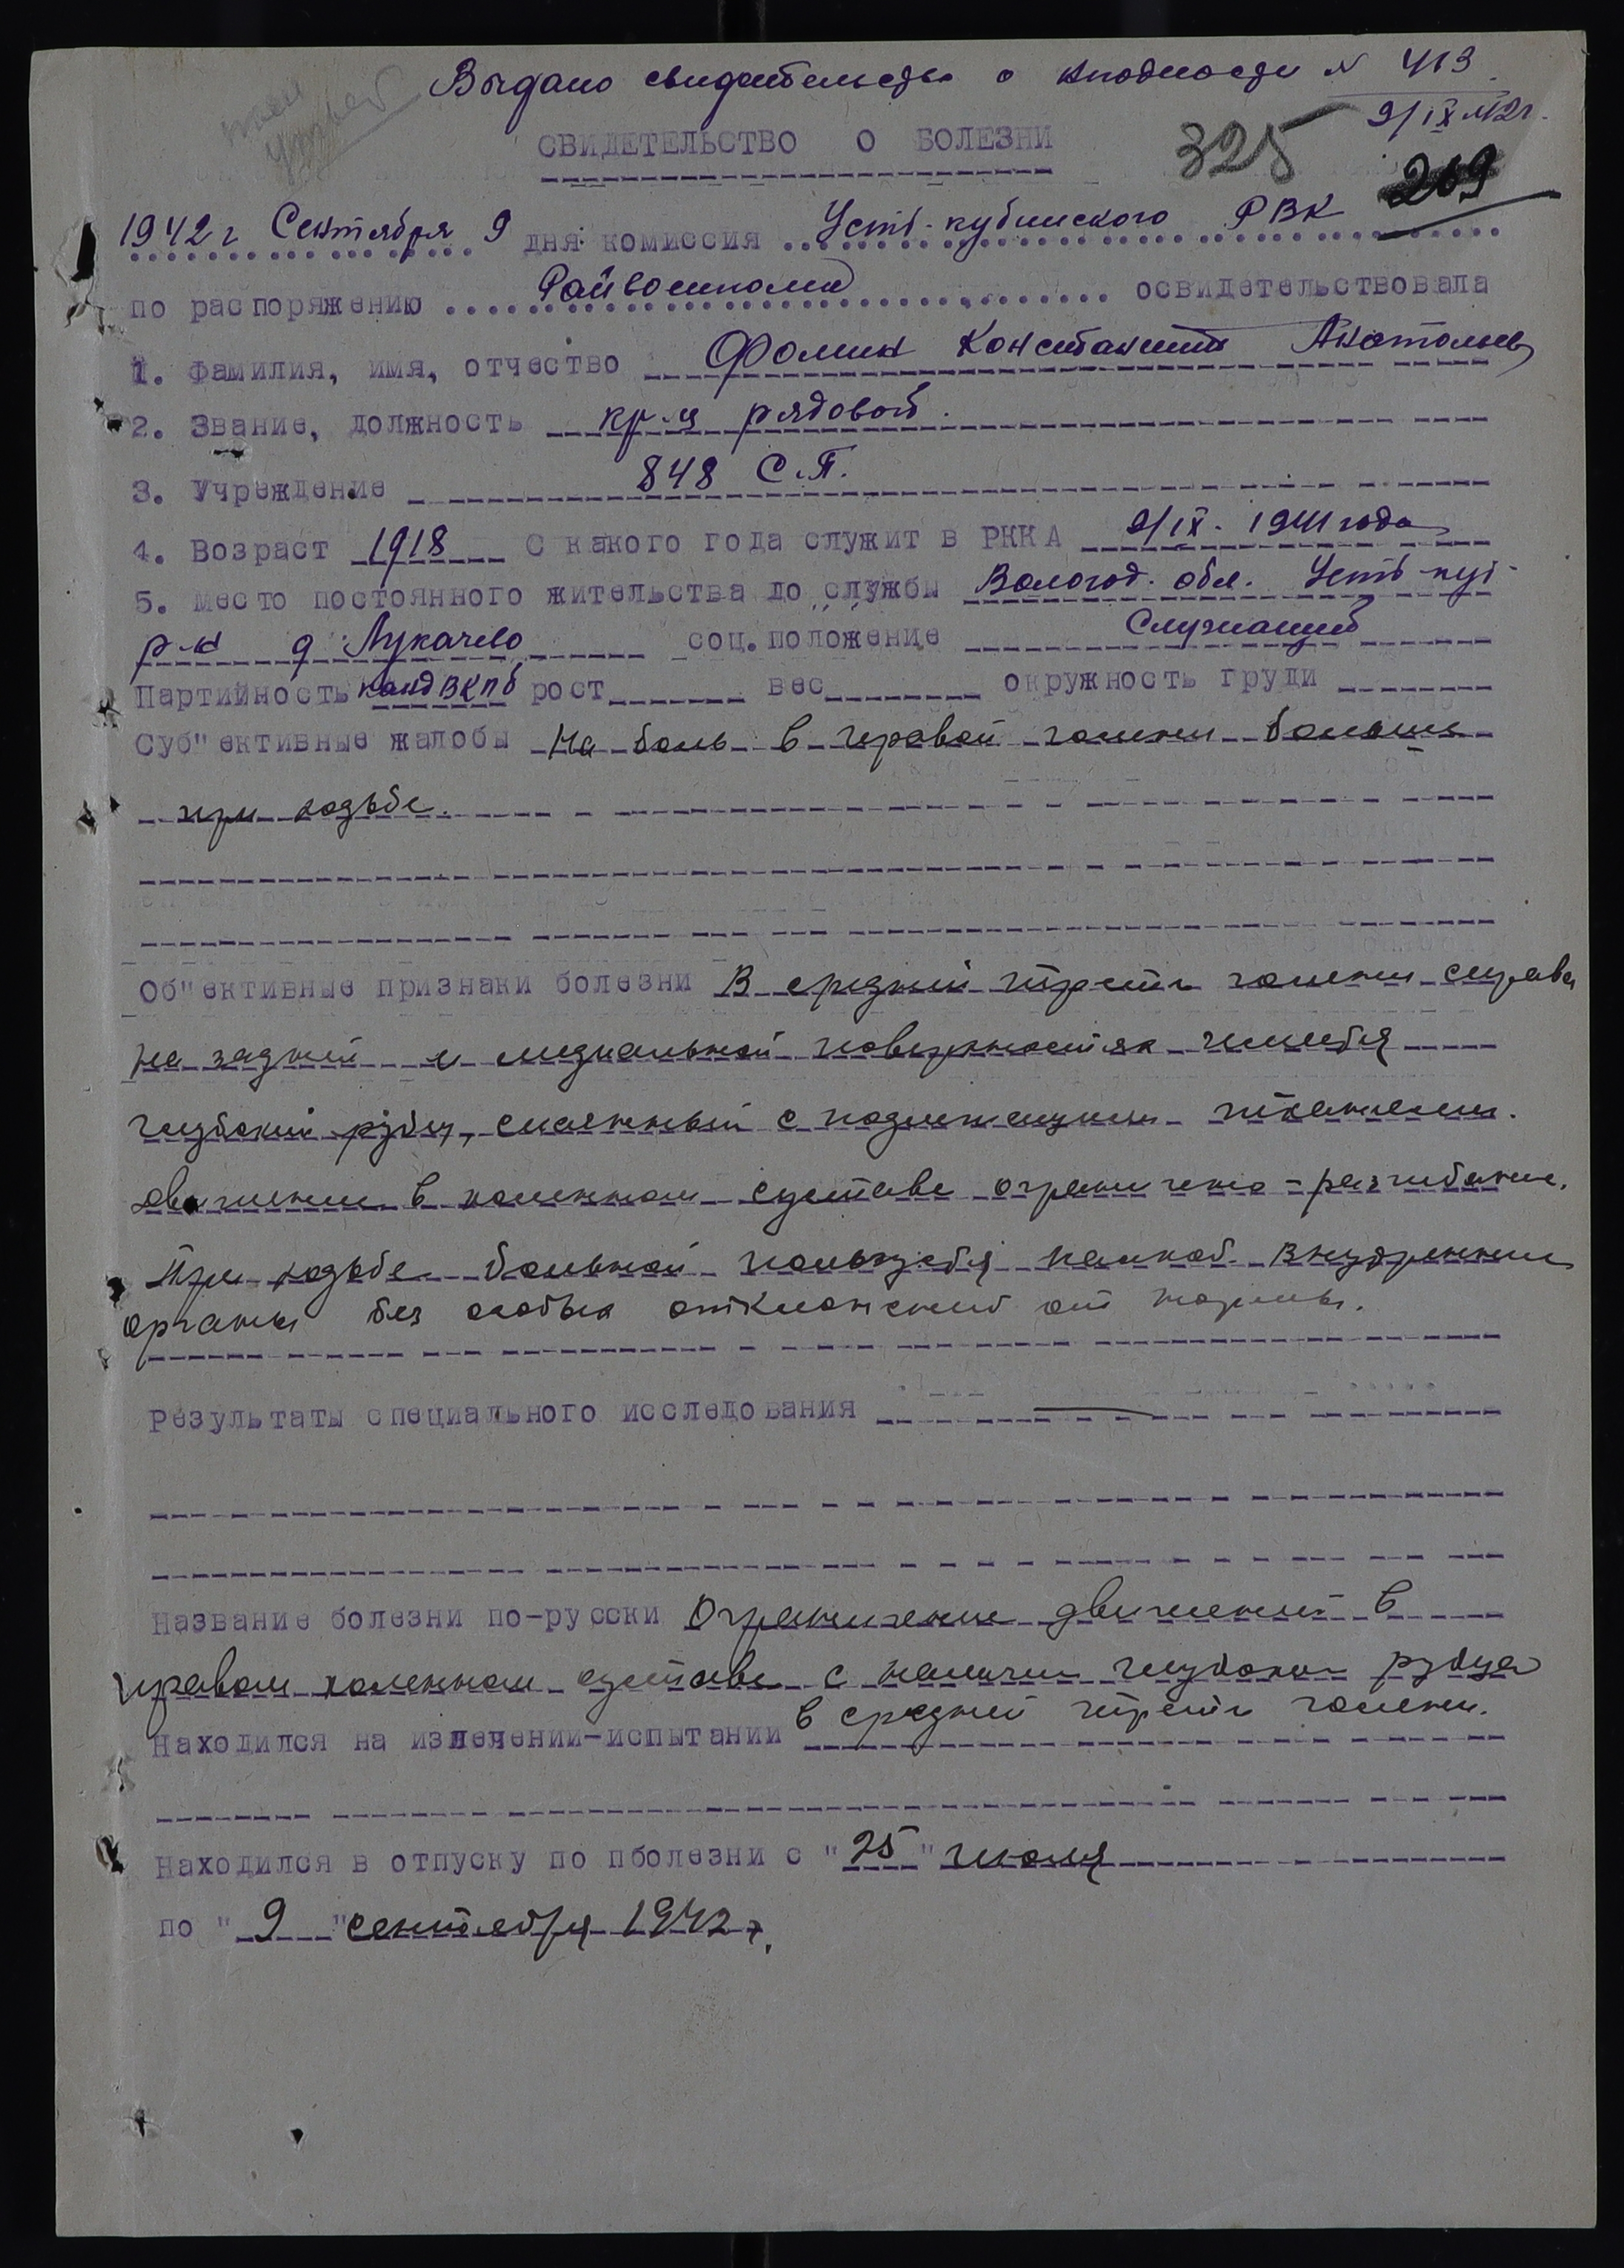 Выдано свидетельство о негодности N 413
9/IX 42г.
СВИДЕТЕЛЬСТВО О БОЛЕЗНИ
325
269
1942 г Сентября 9 дня комиссия Усть-кубинского РВК
по распоряжению Райвоенкома освидетельствовала
1. Фамилия, имя, отчество Фомин Константин Анатольев
2. Звание, должность кр-ц рядовой.
3. Учреждение 848 С.П.
4. Возраст 1918 С какого года служит в РККА 9/IX. 1941 года
5. Место постоянного жительства до службы Вологод. обл. Усть-куб-
р-н д. Лукачево соц. положение Служащий
Партийность канд ВКПб рост вес окружность груди
Суб"ективные жалобы На боль в правой голени больше
при ходьбе.
Об"ективные признаки болезни В средней трети голени справа
на задней и медиальной поверхностях имеется
глубокий рубец, спаянный с подлежащими тканями.
движении в коленном суставе ограничено - разгибание.
При ходьбе больной пользуется палкой. Внутренние
органы без особых отклонений от нормы.
Результаты специального исследования —
Название болезни по-русски Ограничение движений в
правом коленном суставе с наличием глубокого рубца
в средней трети голени.
Находился на излечении-испытании
Находился в отпуску по пболезни с "25" июля
по "9" сентября 1942 г.